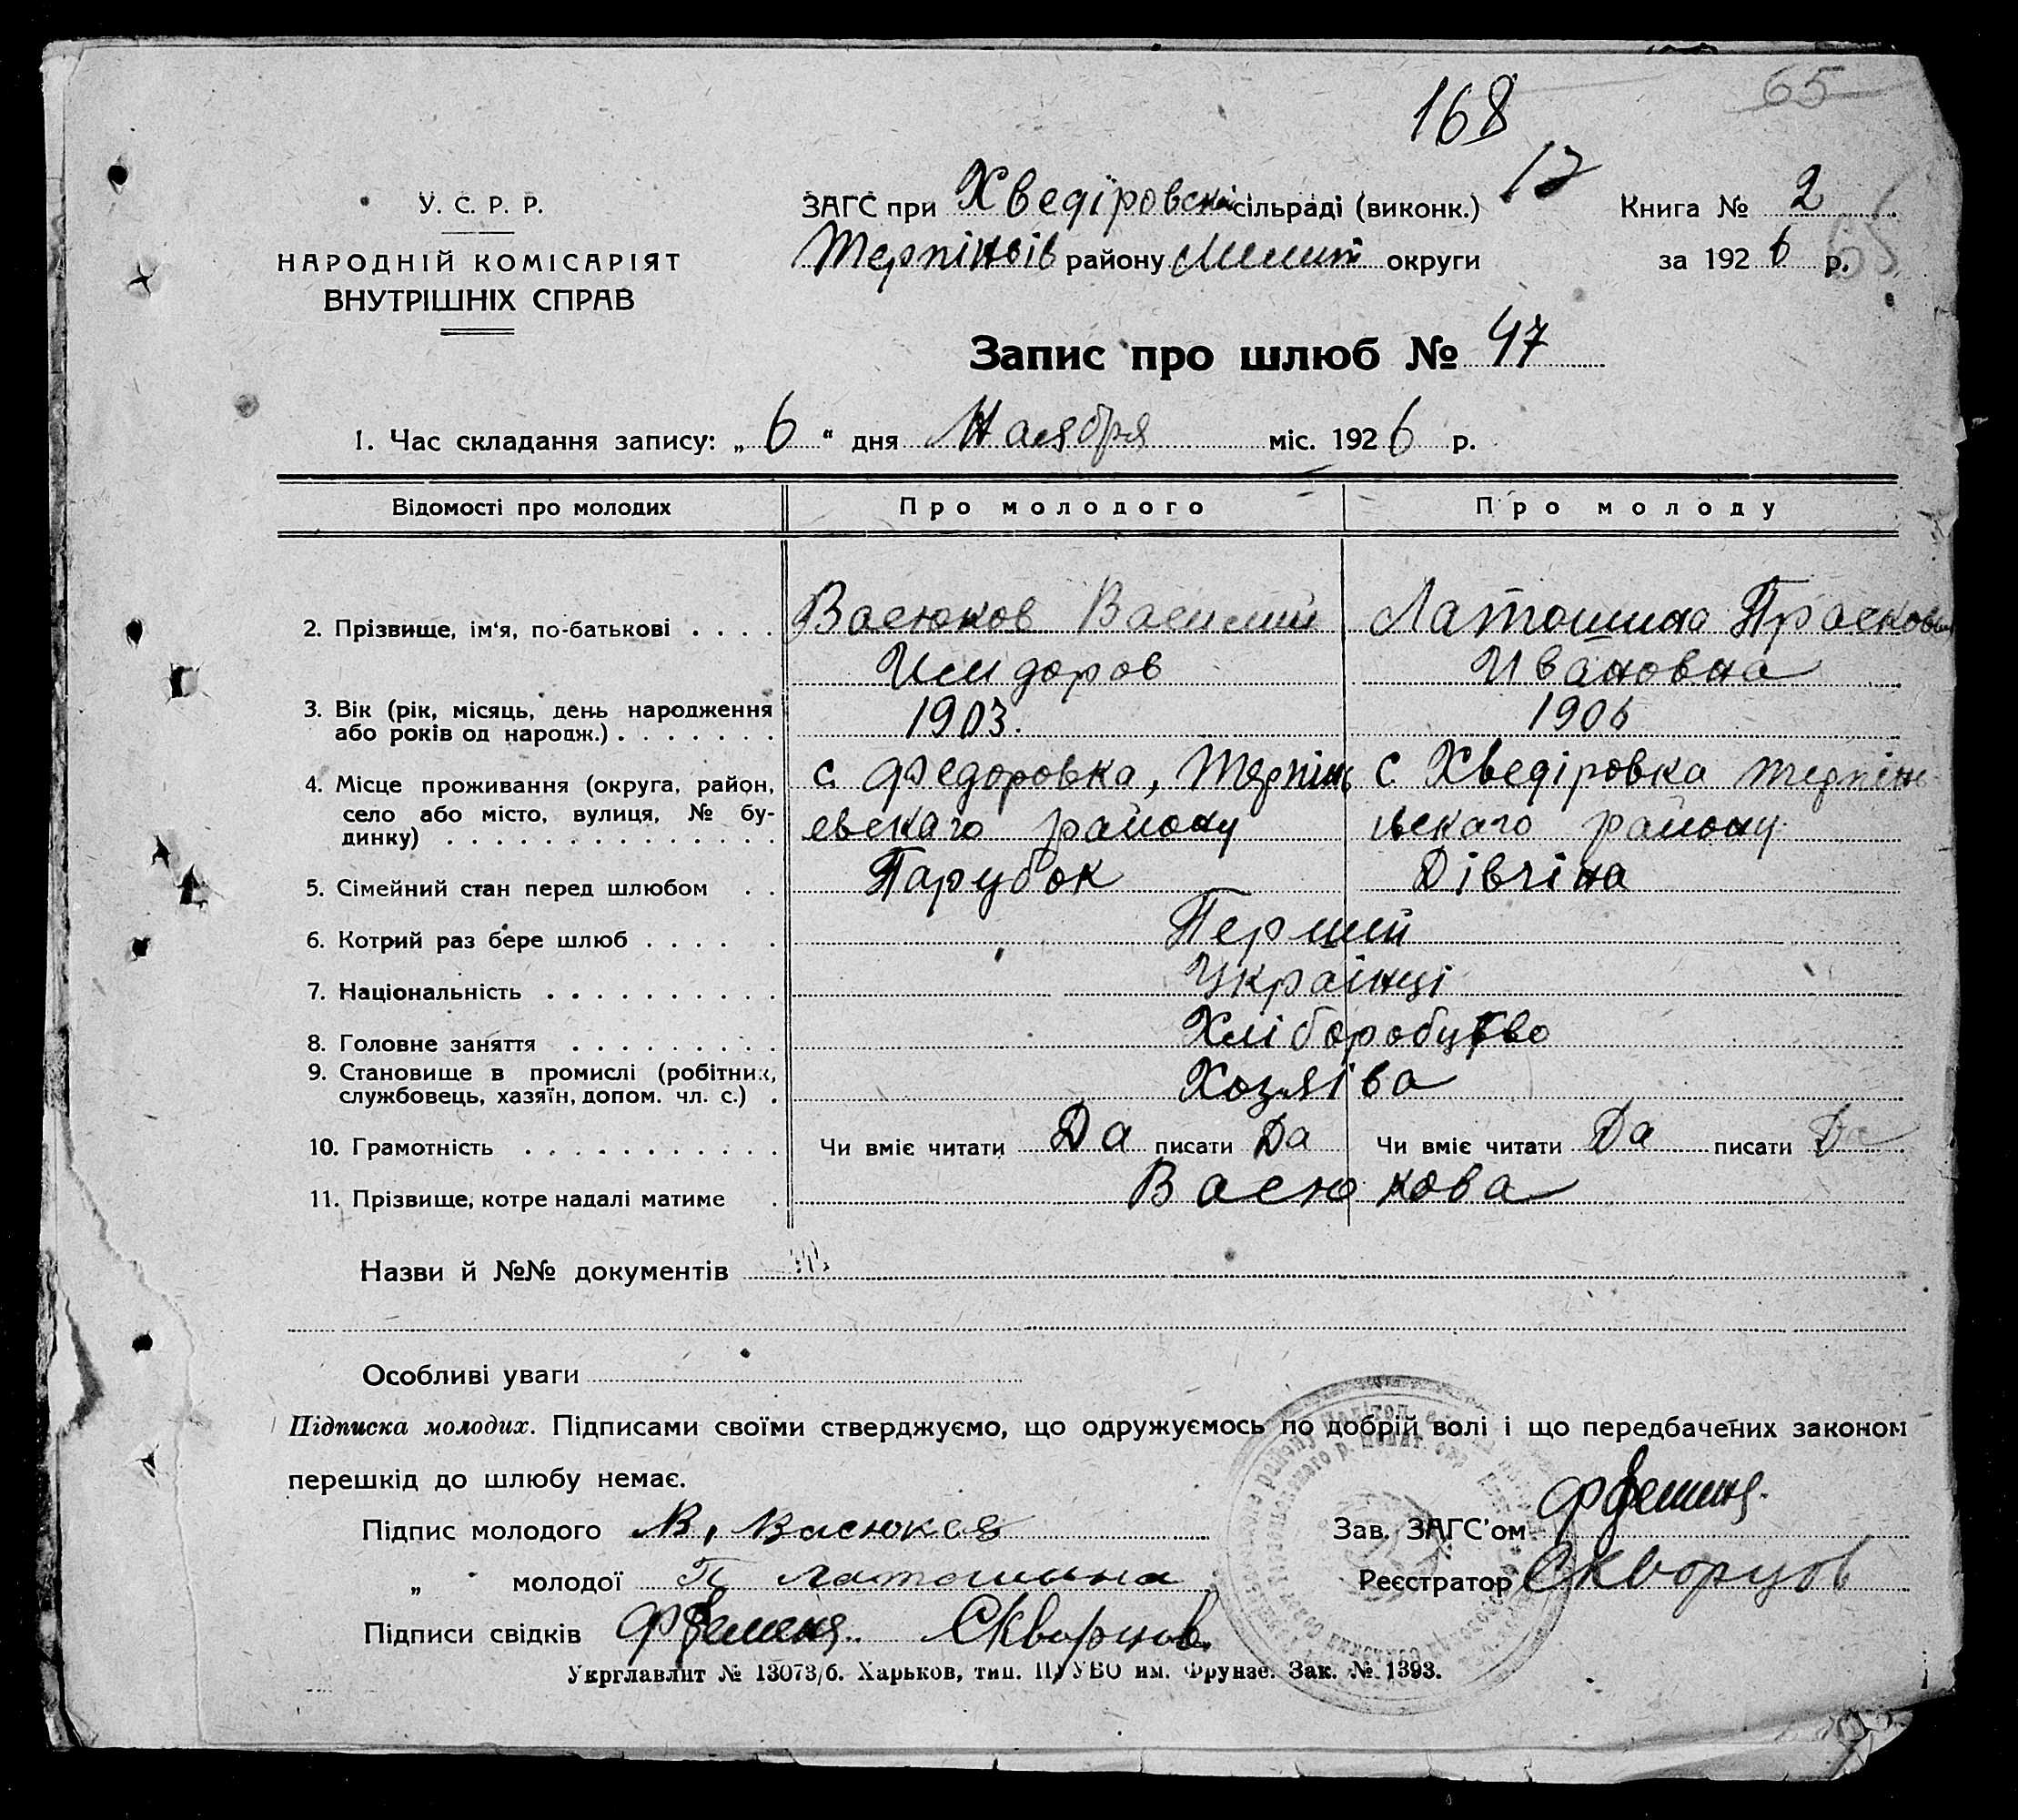 168
65
12
У. С. Р. Р.
НАРОДНІЙ КОМІСАРІЯТ
ВНУТРІШНІХ СПРАВ
ЗАГС при Хведіровскі сільраді (виконк.)
Терпіньів району Мелит округи
Книга № 2
за 1926 р.
65
Запис про шлюб № 47
1. Час складання запису: „ 6 “ дня Наября міс. 1926 р.
Відомості про молодих Про молодого Про молоду
2. Прізвище, ім‘я, по-батькові . . . . Васюков Василий Латошина Прасковья
Исидоров Ивановна
3. Вік (рік, місяць, день народження
або років од народж.) . . . . . . . 1903. 1906
4. Місце проживання (округа, район, с. Федоровка, Терпінь с. Хведіровка терпінь
село або місто, вулиця, № бу-
динку) . . . . . . . . . . . . . . евскаго району ивскаго району
5. Сімейний стан перед шлюбом . . Парубок Дівчіна
6. Котрий раз бере шлюб . . . . . Перший
7. Національність . . . . . . . . . . Українці
8. Головне заняття . . . . . . . . . Хліборобцтво
9. Становище в промислі (робітник,
службовець, хазяїн, допом. чл. с.) . Хозяіва
10. Грамотність . . . . . . . . . . . Чи вміє читати Да писати Да Чи вміє читати Да писати Да
11. Прізвище, котре надалі матиме . Васюкова
Назви й №№ документів
Особливі уваги
Підписка молодих. Підписами своїми стверджуємо, що одружуємось по добрій волі і що передбачених законом
перешкід до шлюбу немає.
Підпис молодого В. Васюков
Зав. ЗАГС’ом
„ молодої П Латошина
Реєстратор Скворцов
Підписи свідків Скворцов.
Укрглавлит № 13073/б. Харьков, тип. ЦУУВО им. Фрунзе. Зак. № 1393.